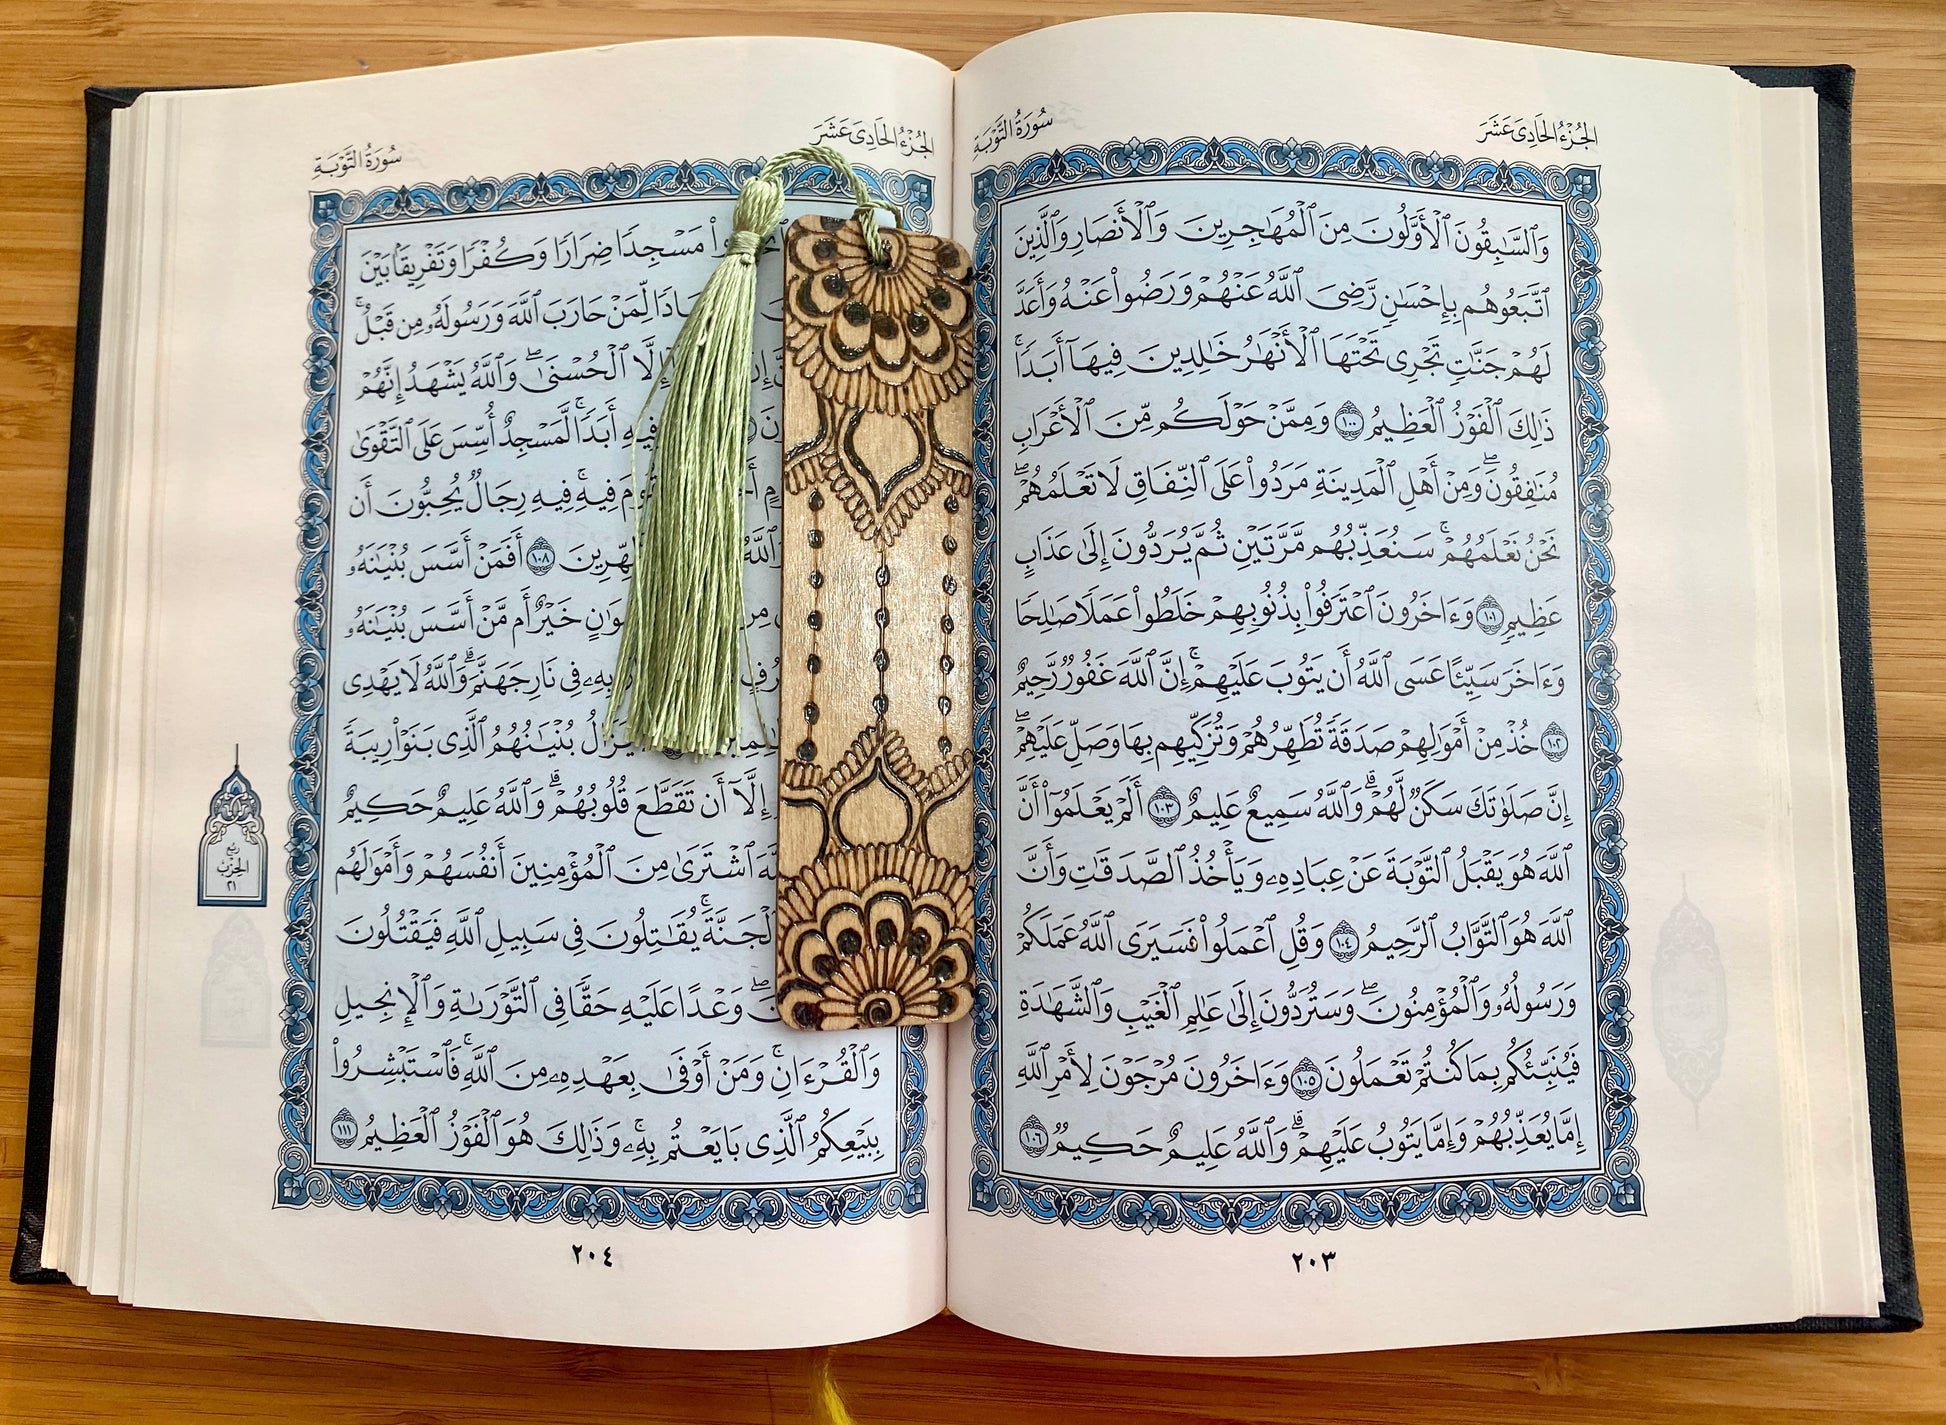 الجُزْءُ الحَادِيَ عَشَرَ
سُورَةُ التَّوْبَةِ
وَٱلسَّٰبِقُونَ ٱلْأَوَّلُونَ مِنَ ٱلْمُهَٰجِرِينَ وَٱلْأَنصَارِ وَٱلَّذِينَ
ٱتَّبَعُوهُم بِإِحْسَٰنٍ رَّضِىَ ٱللَّهُ عَنْهُمْ وَرَضُوا۟ عَنْهُ وَأَعَدَّ
لَهُمْ جَنَّٰتٍ تَجْرِى تَحْتَهَا ٱلْأَنْهَٰرُ خَٰلِدِينَ فِيهَآ أَبَدًا ۚ
ذَٰلِكَ ٱلْفَوْزُ ٱلْعَظِيمُ ١٠٠ وَمِمَّنْ حَوْلَكُم مِّنَ ٱلْأَعْرَابِ
مُنَٰفِقُونَ ۖ وَمِنْ أَهْلِ ٱلْمَدِينَةِ مَرَدُوا۟ عَلَى ٱلنِّفَاقِ لَا تَعْلَمُهُمْ ۖ
نَحْنُ نَعْلَمُهُمْ ۚ سَنُعَذِّبُهُم مَّرَّتَيْنِ ثُمَّ يُرَدُّونَ إِلَىٰ عَذَابٍ
عَظِيمٍ ١٠١ وَءَاخَرُونَ ٱعْتَرَفُوا۟ بِذُنُوبِهِمْ خَلَطُوا۟ عَمَلًا صَٰلِحًا
وَءَاخَرَ سَيِّئًا عَسَى ٱللَّهُ أَن يَتُوبَ عَلَيْهِمْ ۚ إِنَّ ٱللَّهَ غَفُورٌ رَّحِيمٌ
١٠٢ خُذْ مِنْ أَمْوَٰلِهِمْ صَدَقَةً تُطَهِّرُهُمْ وَتُزَكِّيهِم بِهَا وَصَلِّ عَلَيْهِمْ ۖ
إِنَّ صَلَوٰتَكَ سَكَنٌ لَّهُمْ ۗ وَٱللَّهُ سَمِيعٌ عَلِيمٌ ١٠٣ أَلَمْ يَعْلَمُوٓا۟ أَنَّ
ٱللَّهَ هُوَ يَقْبَلُ ٱلتَّوْبَةَ عَنْ عِبَادِهِۦ وَيَأْخُذُ ٱلصَّدَقَٰتِ وَأَنَّ
ٱللَّهَ هُوَ ٱلتَّوَّابُ ٱلرَّحِيمُ ١٠٤ وَقُلِ ٱعْمَلُوا۟ فَسَيَرَى ٱللَّهُ عَمَلَكُمْ
وَرَسُولُهُۥ وَٱلْمُؤْمِنُونَ ۖ وَسَتُرَدُّونَ إِلَىٰ عَٰلِمِ ٱلْغَيْبِ وَٱلشَّهَٰدَةِ
فَيُنَبِّئُكُم بِمَا كُنتُمْ تَعْمَلُونَ ١٠٥ وَءَاخَرُونَ مُرْجَوْنَ لِأَمْرِ ٱللَّهِ
إِمَّا يُعَذِّبُهُمْ وَإِمَّا يَتُوبُ عَلَيْهِمْ ۗ وَٱللَّهُ عَلِيمٌ حَكِيمٌ ١٠٦
٢٠٣
الجُزْءُ الحَادِيَ عَشَرَ
سُورَةُ التَّوْبَةِ
مَسْجِدًا ضِرَارًا وَكُفْرًا وَتَفْرِيقًۢا بَيْنَ
لِّمَنْ حَارَبَ ٱللَّهَ وَرَسُولَهُۥ مِن قَبْلُ ۚ
إِلَّا ٱلْحُسْنَىٰ ۖ وَٱللَّهُ يَشْهَدُ إِنَّهُمْ
فِيهِ أَبَدًا ۚ لَّمَسْجِدٌ أُسِّسَ عَلَى ٱلتَّقْوَىٰ
فِيهِ ۚ فِيهِ رِجَالٌ يُحِبُّونَ أَن
١٠٨ أَفَمَنْ أَسَّسَ بُنْيَٰنَهُۥ
خَيْرٌ أَم مَّنْ أَسَّسَ بُنْيَٰنَهُۥ
بِهِۦ فِى نَارِ جَهَنَّمَ ۗ وَٱللَّهُ لَا يَهْدِى
بُنْيَٰنُهُمُ ٱلَّذِى بَنَوْا۟ رِيبَةً
إِلَّآ أَن تَقَطَّعَ قُلُوبُهُمْ ۗ وَٱللَّهُ عَلِيمٌ حَكِيمٌ
ٱشْتَرَىٰ مِنَ ٱلْمُؤْمِنِينَ أَنفُسَهُمْ وَأَمْوَٰلَهُم
ٱلْجَنَّةَ ۚ يُقَٰتِلُونَ فِى سَبِيلِ ٱللَّهِ فَيَقْتُلُونَ
وَعْدًا عَلَيْهِ حَقًّا فِى ٱلتَّوْرَىٰةِ وَٱلْإِنجِيلِ
وَٱلْقُرْءَانِ ۚ وَمَنْ أَوْفَىٰ بِعَهْدِهِۦ مِنَ ٱللَّهِ ۚ فَٱسْتَبْشِرُوا۟
بِبَيْعِكُمُ ٱلَّذِى بَايَعْتُم بِهِۦ ۚ وَذَٰلِكَ هُوَ ٱلْفَوْزُ ٱلْعَظِيمُ ١١١
٢٠٤
ربع
الحزب
٢١